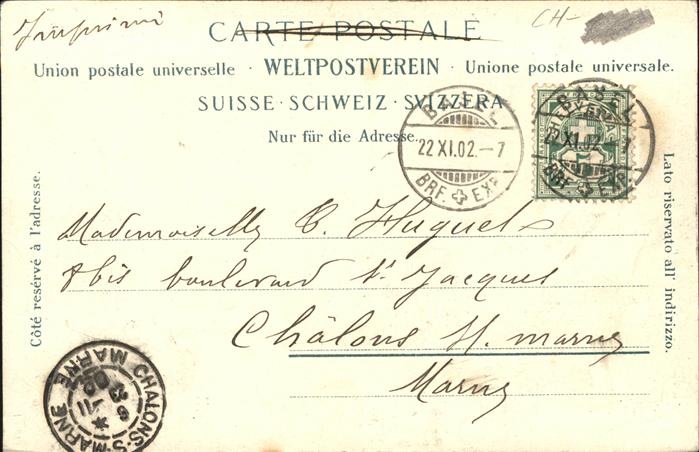 Imprimé
CH-
CARTE POSTALE
Union postale universelle · WELTPOSTVEREIN · Unione postale universale.
SUISSE · SCHWEIZ · SVIZZERA
Nur für die Adresse.
BASEL
22 XI.02.-7
BRF. EXP.
HELVETIA
BASEL
22 XI.02.-7
BRF. EXP.
Côté resérvé à l'adresse.
Lato riservato all' indirizzo.
Mademoiselle C. Huguet
8 bis boulevard St Jacques
Châlons s/ marne
Marne
CHALONS-S-MARNE
MARNE